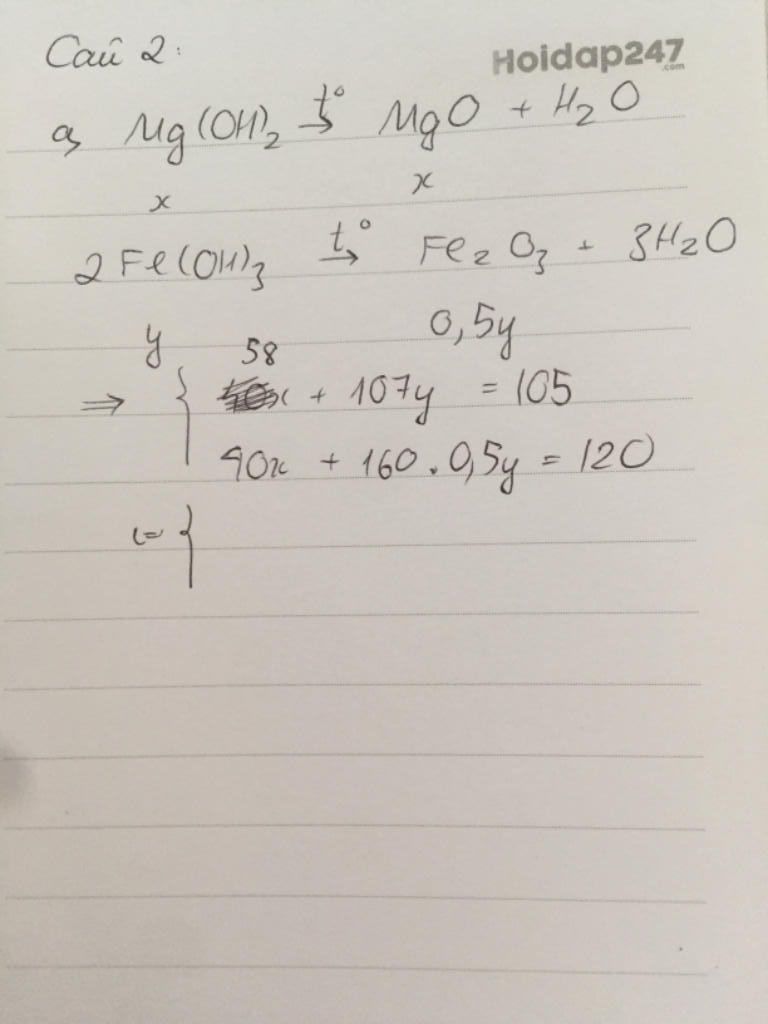 Câu 2:
Hoidap247
.com
a, Mg(OH)₂ t°→ MgO + H₂O
x x
2Fe(OH)₃ t°→ Fe₂O₃ + 3H₂O
y 0,5y
58
⇒ { x + 107y = 105
40x + 160.0,5y = 120
⇔ {